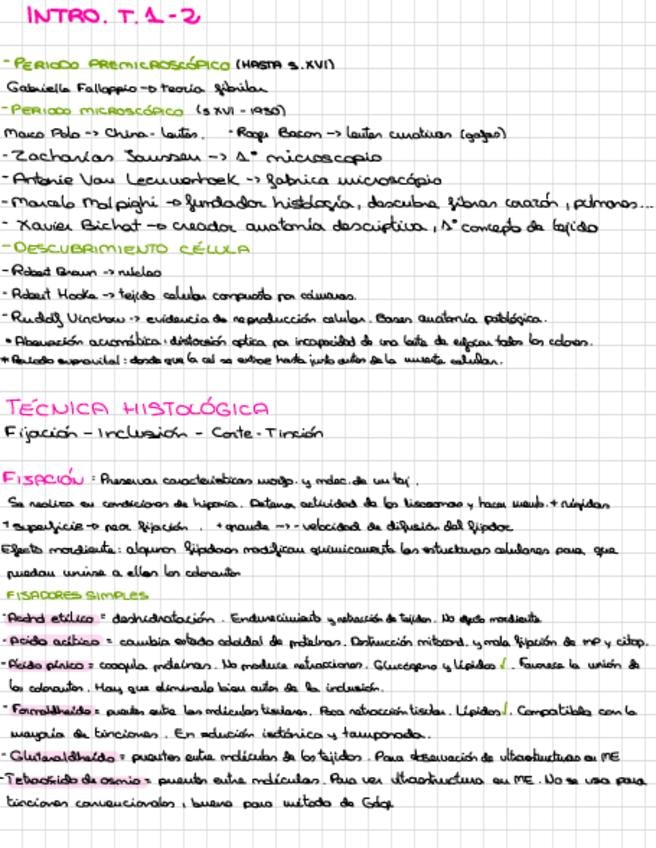 INTRO. T. 1-2
- PERIODO PREMICROSCÓPICO (HASTA S. XVI)
Gabrielle Falloppio → teoría fibrilar
- PERIODO MICROSCÓPICO (s XVI - 1930)
Marco Polo -> China - lentes. - Roger Bacon -> lentes curativas (gafas)
- Zacharias Janssen -> 1º microscopio
- Antonie Van Leeuwenhoek -> fabrica microscópio
- Marcelo Malpighi → fundador histología, descubre fibras corazón, pulmones...
- Xavier Bichat → creador anatomía descriptiva, 1º concepto de tejido
- DESCUBRIMIENTO CÉLULA
- Robert Brown -> núcleo
- Robert Hooke -> tejido celular compuesto por cámaras.
- Rudolf Virchow -> evidencia de reproducción celular. Bases anatomía patológica.
• Aberración acromática: distorsión optica por incapacidad de una lente de enfocar todos los colores.
* Periodo supravital: desde que la cel se extrae hasta justo antes de la muerte celular.
TÉCNICA HISTOLÓGICA
Fijación - Inclusión - Corte - Tinción
FIJACIÓN: Preservar características morfo. y molec. de un tej.
Se realiza en condiciones de hipoxia. Detener actividad de los lisosomas y hacer memb. + rígidas
↑ superficie → peor fijación. + grande -> - velocidad de difusión del fijador
Efecto mordiente: algunos fijadores modifican químicamente las estructuras celulares para que
puedan unirse a ellas los colorantes
FIJADORES SIMPLES
- Alcohol etílico = deshidratación. Endurecimiento y retracción de tejidos. No efecto mordiente
- Acido acético = cambia estado coloidal de proteínas. Destrucción mitocond. y mala fijación de mP y citop.
- Ácido pícrico = coagula proteínas. No produce retracciones. Glucógeno y lípidos √. Favorece la unión de
los colorantes. Hay que eliminarlo bien antes de la inclusión.
- Formaldheído = puentes entre las moléculas tisulares. Poca retracción tisular. Lípidos √. Compatible con la
mayoría de tinciones. En solución isotónica y tamponada.
- Glutaraldheído = puentes entre moléculas de los tejidos. Para observación de ultraestructuras en ME
- Tetraóxido de osmio = puentes entre moléculas. Para ver ultraestructura en ME. No se usa para
tinciones convencionales, bueno para método de Golgi